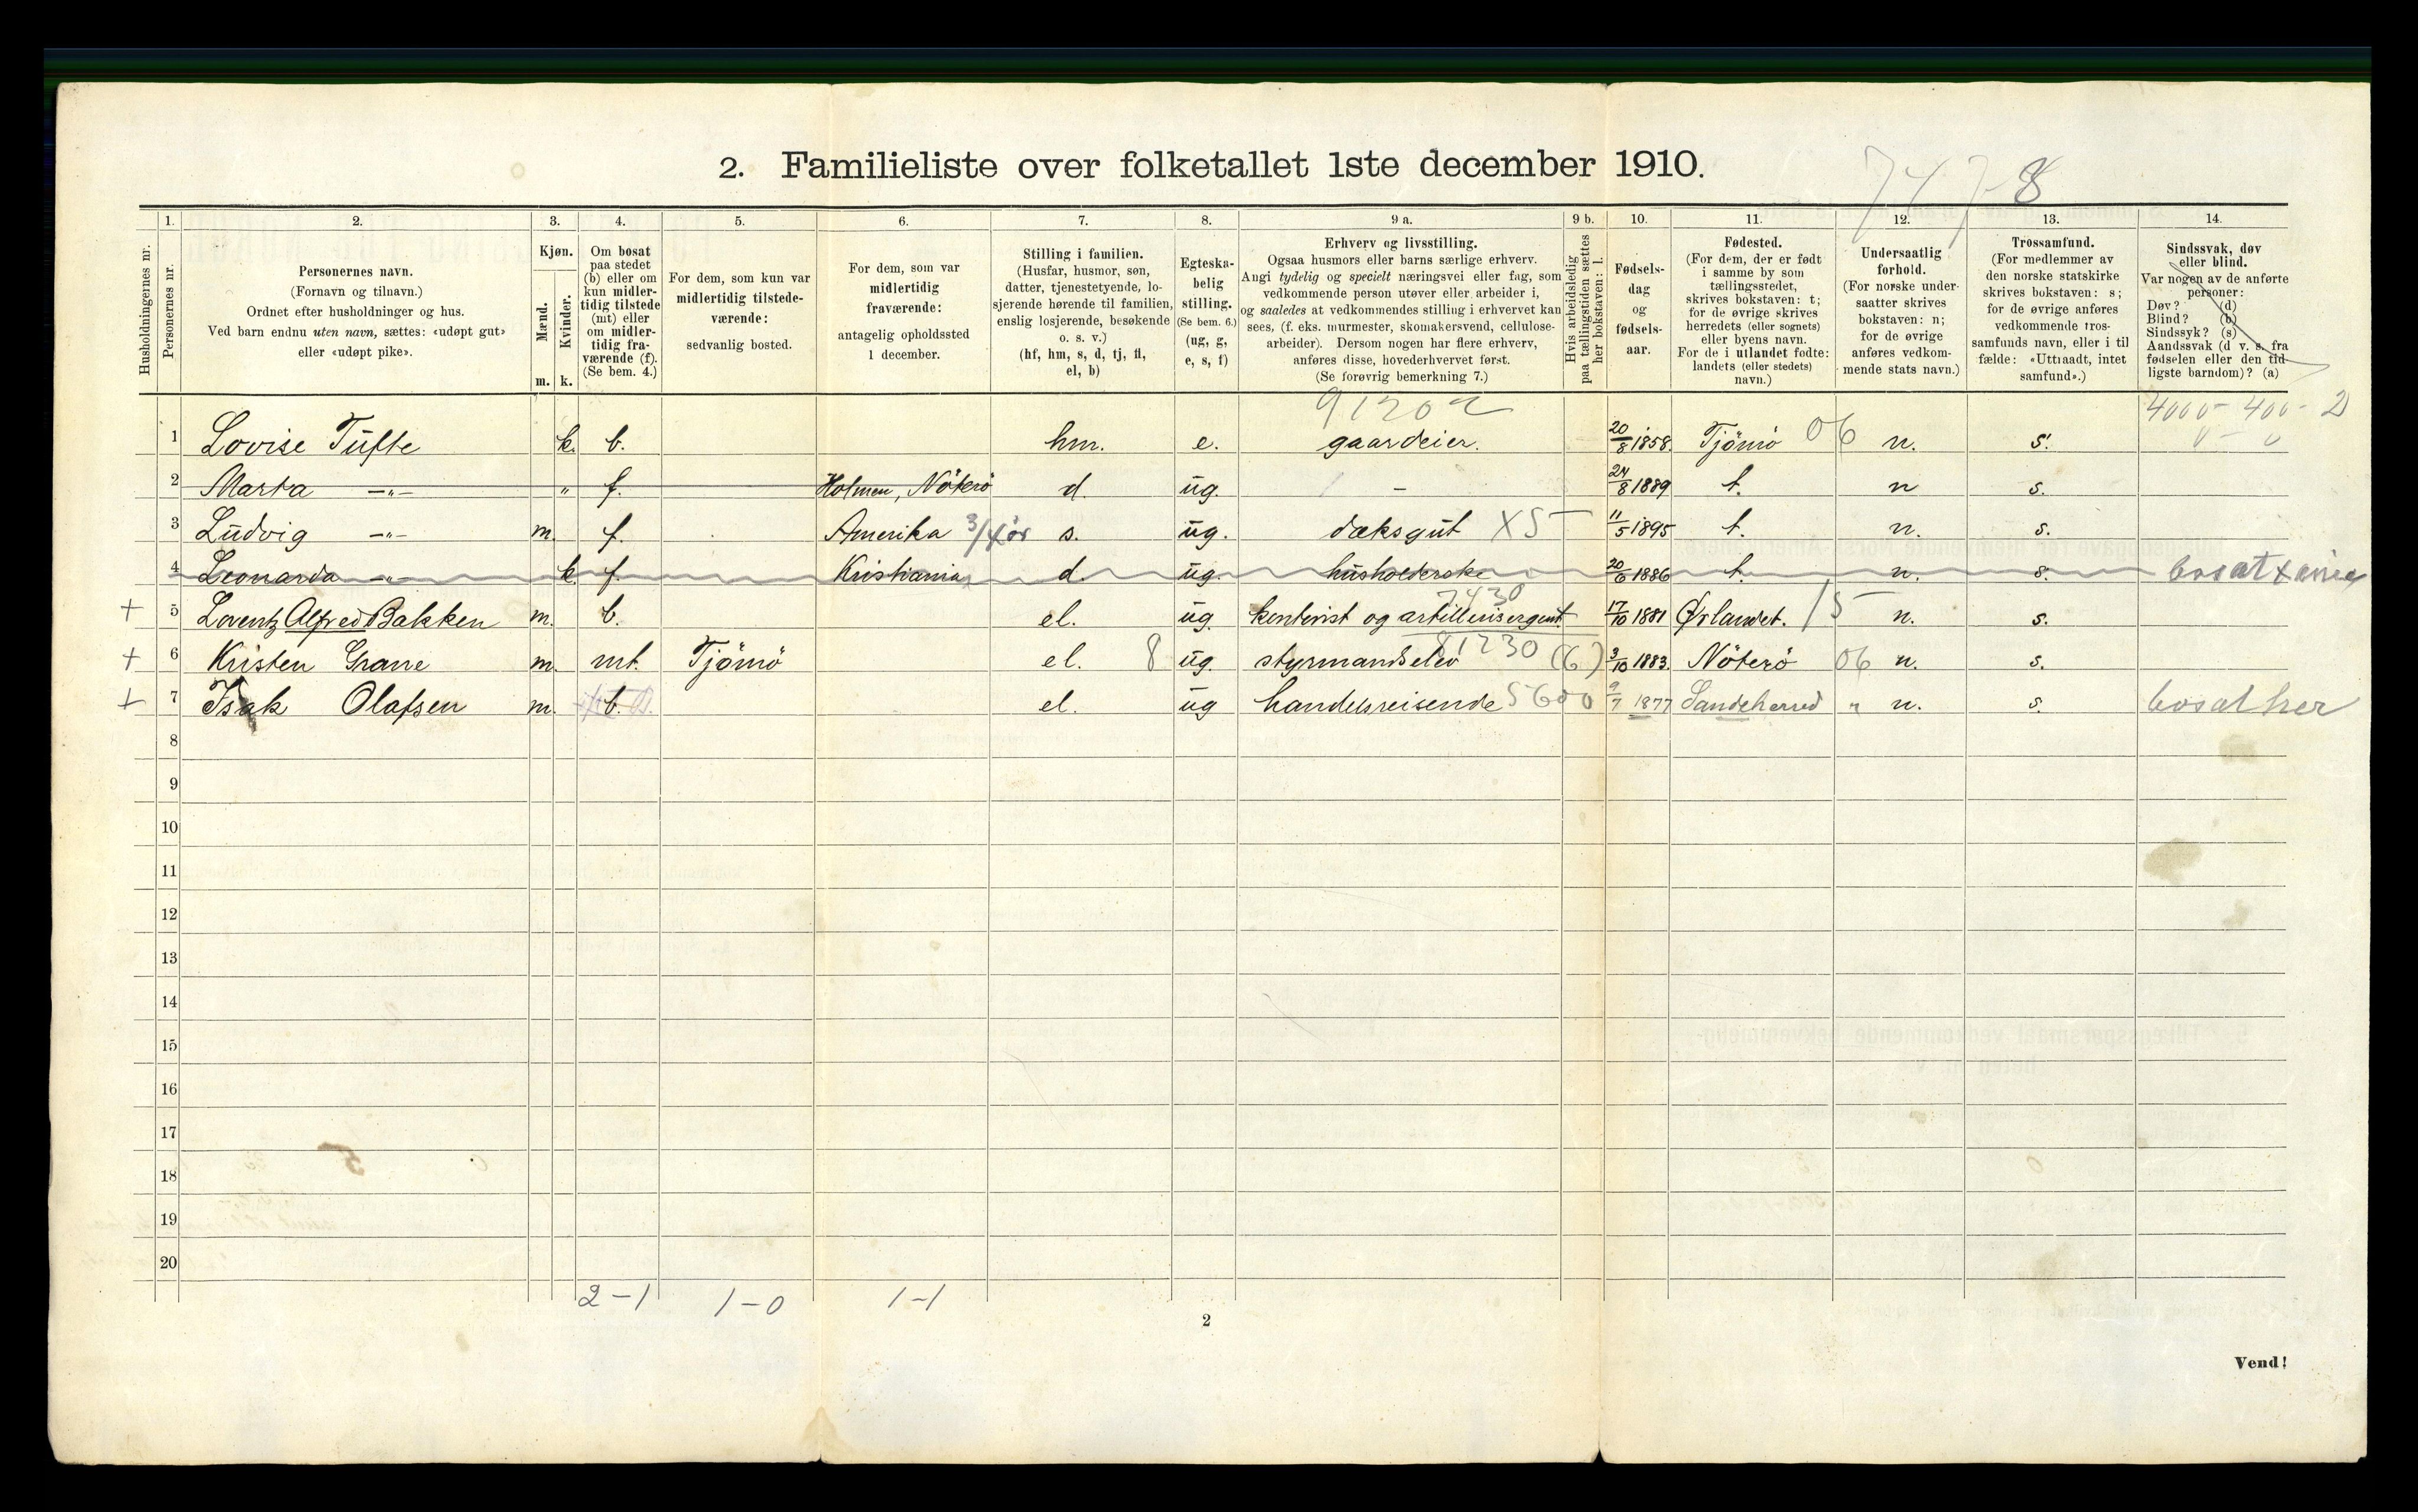 2. Familieliste over folketallet 1ste december 1910.
747-8
Husholdningernes nr.
1.
Personernes nr.
2.
Personernes navn.
(Fornavn og tilnavn.)
Ordnet efter husholdninger og hus.
Ved barn endnu uten navn, sættes: «udøpt gut»
eller «udøpt pike».
3.
Kjøn.
Mænd.
m.
Kvinder.
k.
4.
Om bosat
paa stedet
(b) eller om
kun midler-
tidig tilstede
(mt) eller
om midler-
tidig fra-
værende (f).
(Se bem. 4.)
5.
For dem, som kun var
midlertidig tilstede-
værende:
sedvanlig bosted.
6.
For dem, som var
midlertidig
fraværende:
antagelig opholdssted
1 december.
7.
Stilling i familien.
(Husfar, husmor, søn,
datter, tjenestetyende, lo-
sjerende hørende til familien,
enslig losjerende, besøkende
o. s. v.)
(hf, hm, s, d, tj, fl,
el, b)
8.
Egteska-
belig
stilling.
(Se bem. 6.)
(ug, g,
e, s, f)
9 a.
Erhverv og livsstilling.
Ogsaa husmors eller barns særlige erhverv.
Angi tydelig og specielt næringsvei eller fag, som
vedkommende person utøver eller arbeider i,
og saaledes at vedkommendes stilling i erhvervet kan
sees, (f. eks. murmester, skomakersvend, cellulose-
arbeider). Dersom nogen har flere erhverv,
anføres disse, hovederhvervet først.
(Se forøvrig bemerkning 7.)
9 b.
Hvis arbeidsledig
paa tællingstiden sættes
her bokstaven: l.
10.
Fødsels-
dag
og
fødsels-
aar.
11.
Fødested.
(For dem, der er født
i samme by som
tællingsstedet,
skrives bokstaven: t;
for de øvrige skrives
herredets (eller sognets)
eller byens navn.
For de i utlandet fødte:
landets (eller stedets)
navn.)
12.
Undersaatlig
forhold.
(For norske under-
saatter skrives
bokstaven: n;
for de øvrige
anføres vedkom-
mende stats navn.)
13.
Trossamfund.
(For medlemmer av
den norske statskirke
skrives bokstaven: s;
for de øvrige anføres
vedkommende tros-
samfunds navn, eller i til
fælde: «Uttraadt, intet
samfund».)
14.
Sindssvak, døv
eller blind.
Var nogen av de anførte
personer:
Døv? (d)
Blind? (b)
Sindssyk? (s)
Aandssvak (d v. s. fra
fødselen eller den tid-
ligste barndom)? (a)
4000 - 400 - 2
0 - 0
1 Lovise Tufte k. b. hm. e. gaardeier. 20/8 1858. Tjömö 06 n. s.
2 Marta —„— „ f. Holmen, Nöterö d. ug. - 24/8 1889 t. n s.
3 Ludvig —„— m. f. Amerika 3/4 år s. ug. dæksgut X5 11/5 1895 t. n. s.
4 Leonarda —„— k. f. Kristiania d. ug. husholderske 20/6 1886 t. n. s. bosat x ania
+ 5 Lorentz Alfred Bakken m. b. el. ug. kontorist og artillerisergent. 7430 17/10 1881 Ørlandet. 15 n. s.
+ 6 Kristen Grane m. mt. Tjömö el. 8 ug. styrmandselev 81230 (6) 3/10 1883. Nöterö 06 n. s.
+ 7 Isak Olafsen m. b. el. ug handelsreisende 5600 9/7 1877 Sandeherred „ n. s. bosat her
8
9
10
11
12
13
14
15
16
17
18
19
20
2-1 1-0 1-1
2
Vend!